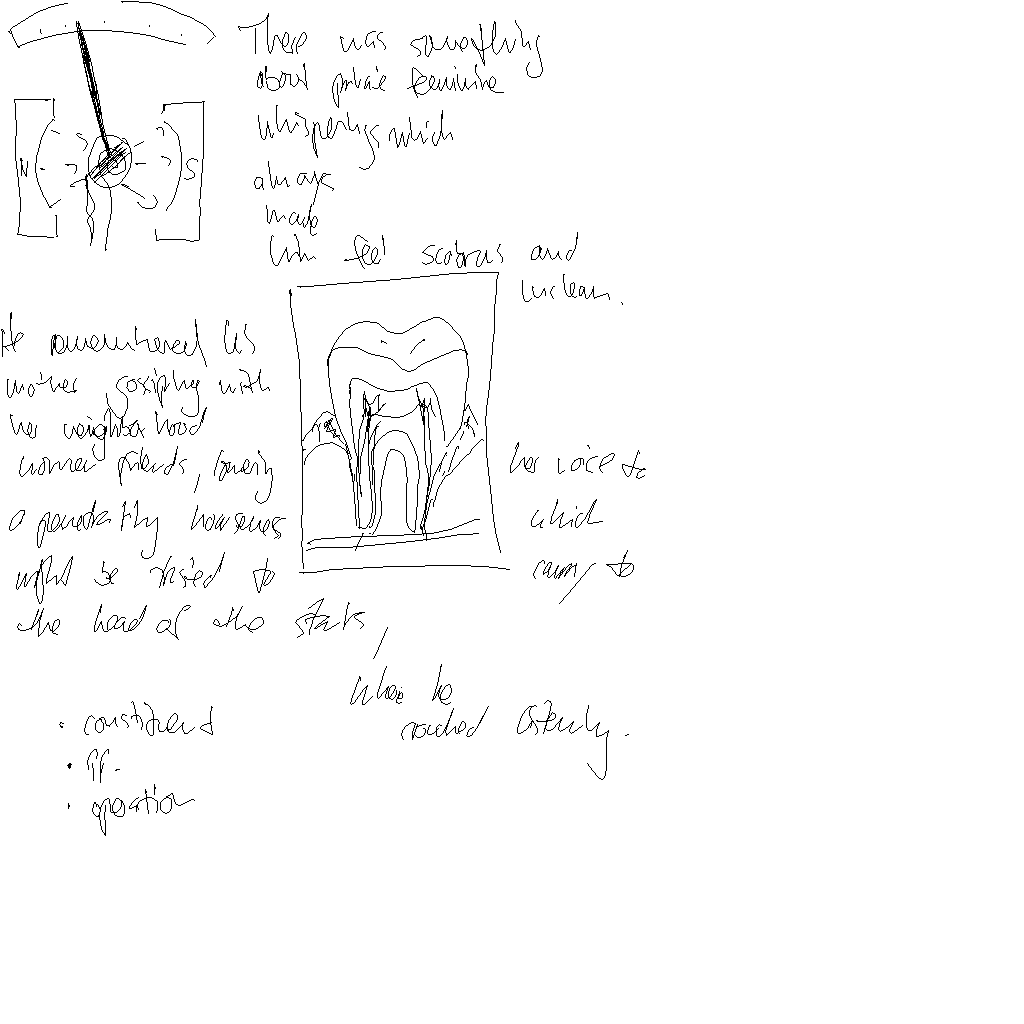 There was something
about private feminine
whisperings which
always
made
him feel scabrous and
unclean.
N S
He remembered his
mother gossiping with
her neighborhood
women friends, lowering
her voice to
a penetrating hoarseness
which
might be raised to
carry to
the head of the stairs,
where he
crouched listening.
• constituent
• pp.
• operation